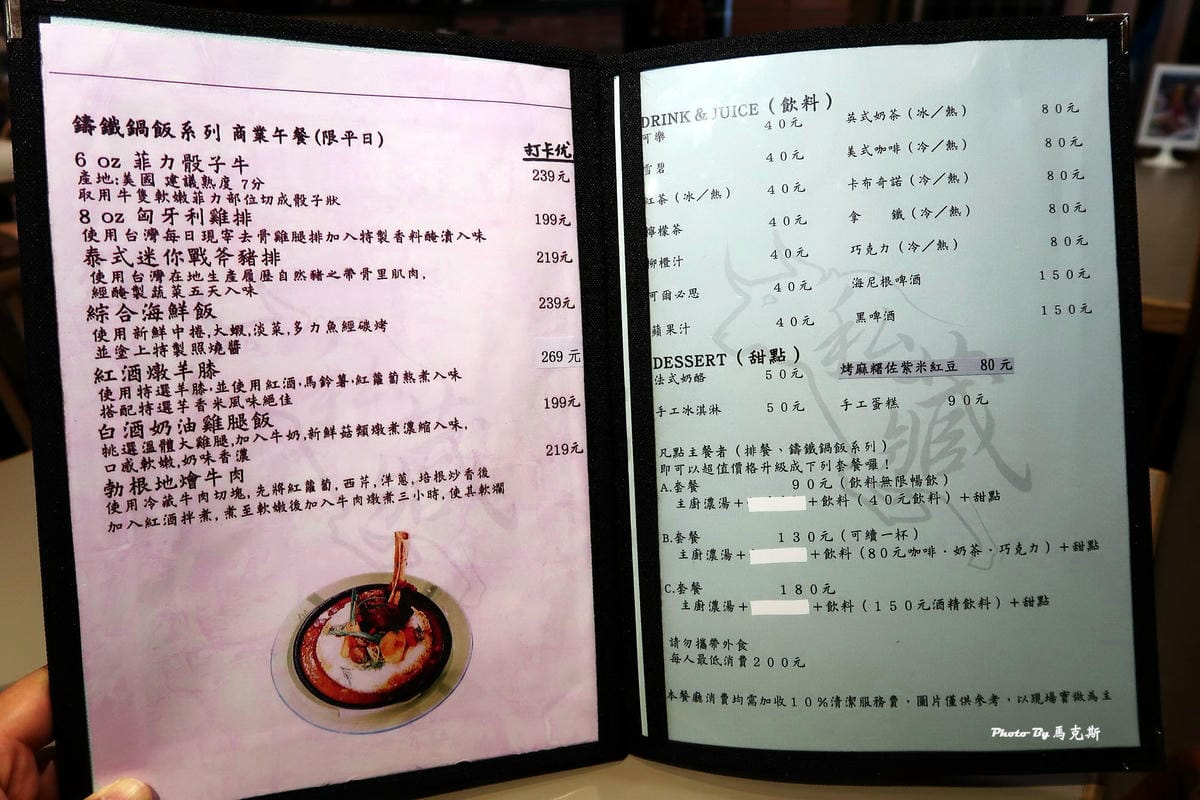 鑄鐵鍋飯系列 商業午餐(限平日)
打卡优
6 oz 菲力骰子牛 239元
產地:美國 建議熟度 7分
取用牛隻軟嫩菲力部位切成骰子狀
8 oz 匈牙利雞排 199元
使用台灣每日現宰去骨雞腿排加入特製香料醃漬入味
泰式迷你戰斧豬排 219元
使用台灣在地生產履歷自然豬之帶骨里肌肉,
經醃製蔬菜五天入味
綜合海鮮飯 239元
使用新鮮中捲,大蝦,淡菜,多力魚經碳烤
並塗上特製照燒醬
紅酒燉羊膝 269 元
使用特選羊膝,並使用紅酒,馬鈴薯,紅蘿蔔熬煮入味
搭配特選芋香米風味絕佳
白酒奶油雞腿飯 199元
挑選溫體大雞腿,加入牛奶,新鮮菇類燉煮濃縮入味,
口感軟嫩,奶味香濃
勃根地燴牛肉 219元
使用冷藏牛肉切塊,先將紅蘿蔔,西芹,洋蔥,培根炒香後
加入紅酒拌煮,煮至軟嫩後加入牛肉燉煮三小時,使其軟爛
DRINK & JUICE (飲料)
可樂 40元 英式奶茶(冰／熱) 80元
雪碧 40元 美式咖啡(冷／熱) 80元
紅茶(冰／熱) 40元 卡布奇諾(冷／熱) 80元
檸檬茶 40元 拿 鐵(冷／熱) 80元
柳橙汁 40元 巧克力(冷／熱) 80元
可爾必思 40元 海尼根啤酒 150元
蘋果汁 40元 黑啤酒 150元
DESSERT (甜點)
法式奶酪 50元 烤麻糬佐紫米紅豆 80元
手工冰淇淋 50元 手工蛋糕 90元
凡點主餐者(排餐、鑄鐵鍋飯系列)
即可以超值價格升級成下列套餐囉！
A.套餐 90元(飲料無限暢飲)
主廚濃湯＋ ＋飲料(40元飲料)＋甜點
B.套餐 130元(可續一杯)
主廚濃湯＋ ＋飲料(80元咖啡．奶茶．巧克力)＋甜點
C.套餐 180元
主廚濃湯＋ ＋飲料(150元酒精飲料)＋甜點
請勿攜帶外食
每人最低消費200元
本餐廳消費均需加收10%清潔服務費，圖片僅供參考，以現場實做為主
私藏
Photo By 馬克斯